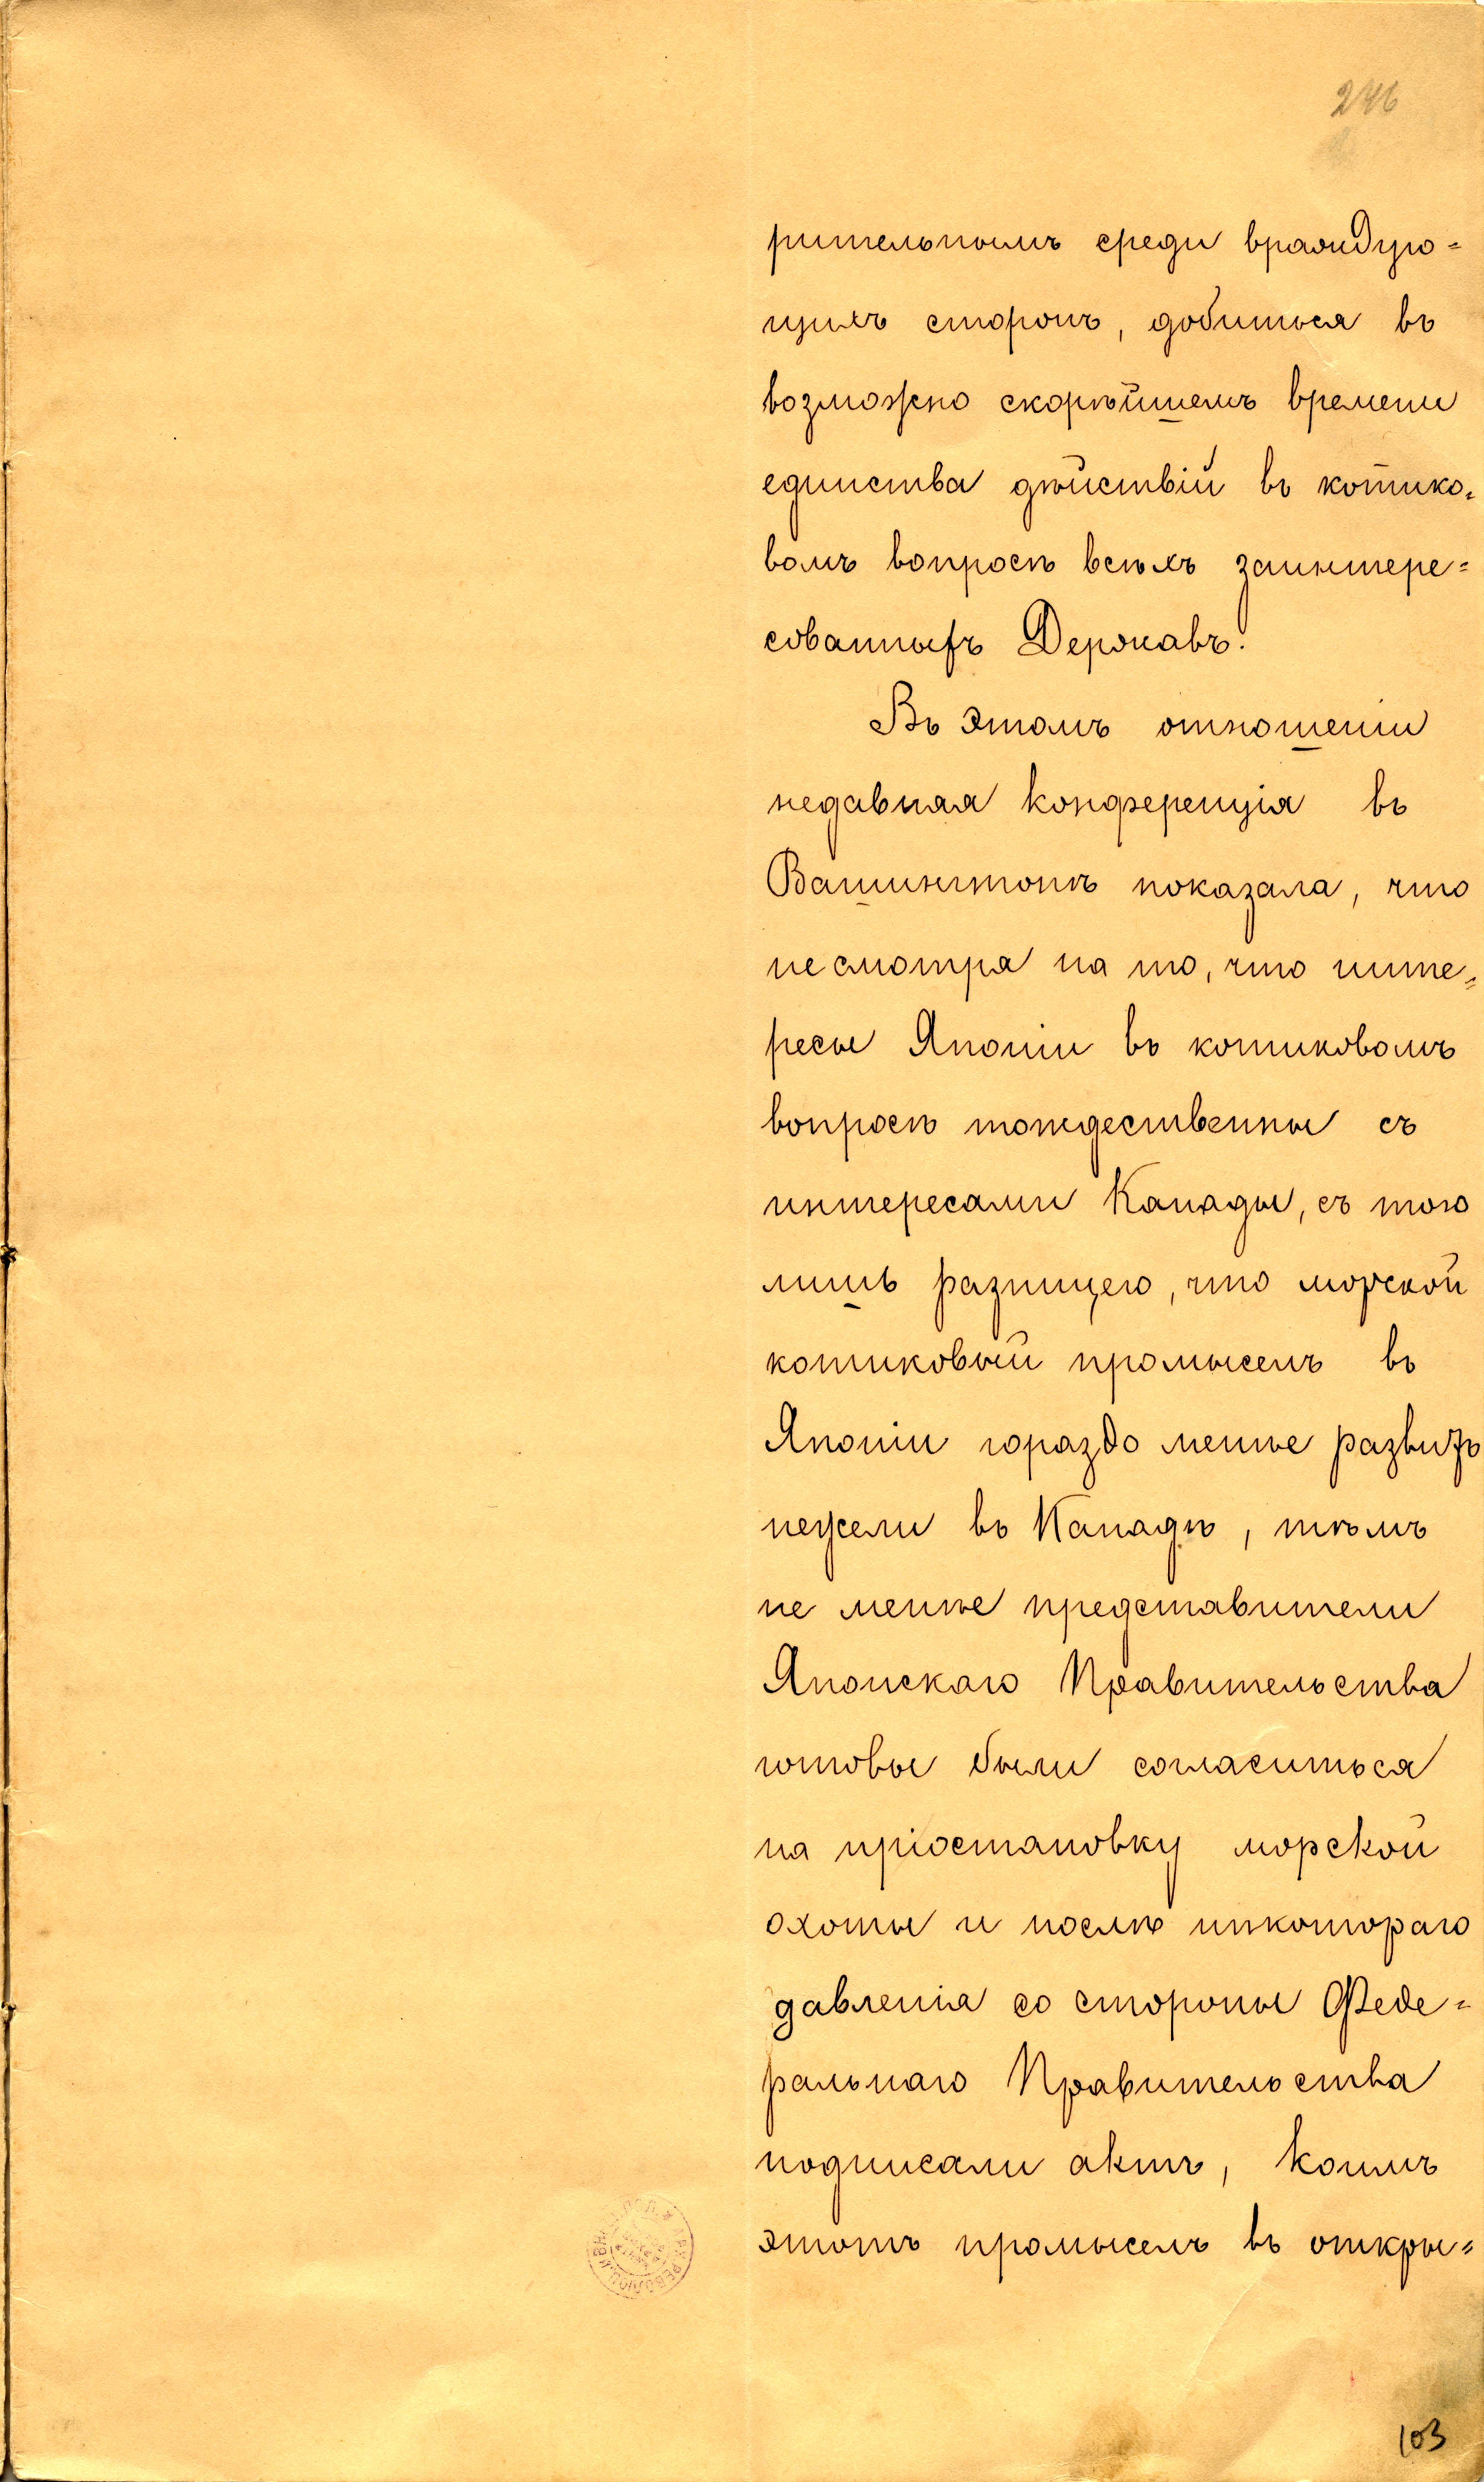 246
рительнымъ среди враждую=
щихъ сторонъ, добиться въ
возможно скорѣйшемъ времени
единства дѣйствій въ котико=
вомъ вопросѣ всѣхъ заинтере=
сованныхъ Державъ.
Въ этомъ отношеніи
недавняя конференція въ
Вашингтонѣ показала, что
не смотря на то, что инте=
ресы Японіи въ котиковомъ
вопросѣ тождественны съ
интересами Канады, съ тою
лишь разницею, что морской
котиковый промыселъ въ
Японіи гораздо менѣе развитъ
нежели въ Канадѣ, тѣмъ
не менѣе представители
Японскаго Правительства
готовы были согласиться
на пріостановку морской
охоты и послѣ нѣкотораго
давленія со стороны Феде=
ральнаго Правительства
подписали актъ, коимъ
этотъ промыселъ въ откры=
103